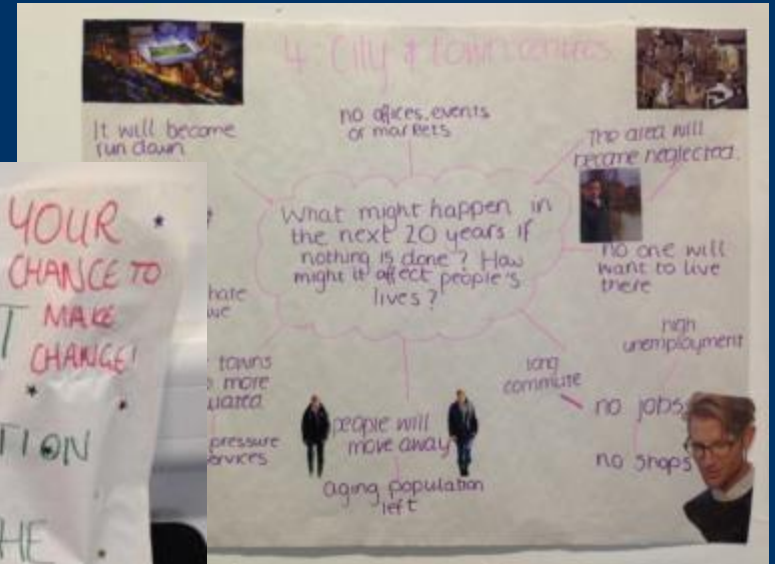 4. City & town centres.
It will become
run down
no offices, events
or markets
The area will
become neglected.
What might happen in
the next 20 years if
nothing is done? How
might it affect people's
lives?
no one will
want to live
there
high
unemployment
long
commute
no jobs
no shops
people will
move away
aging population
left
towns
more
pressure
YOUR
CHANCE TO
MAKE
CHANGE!
HE